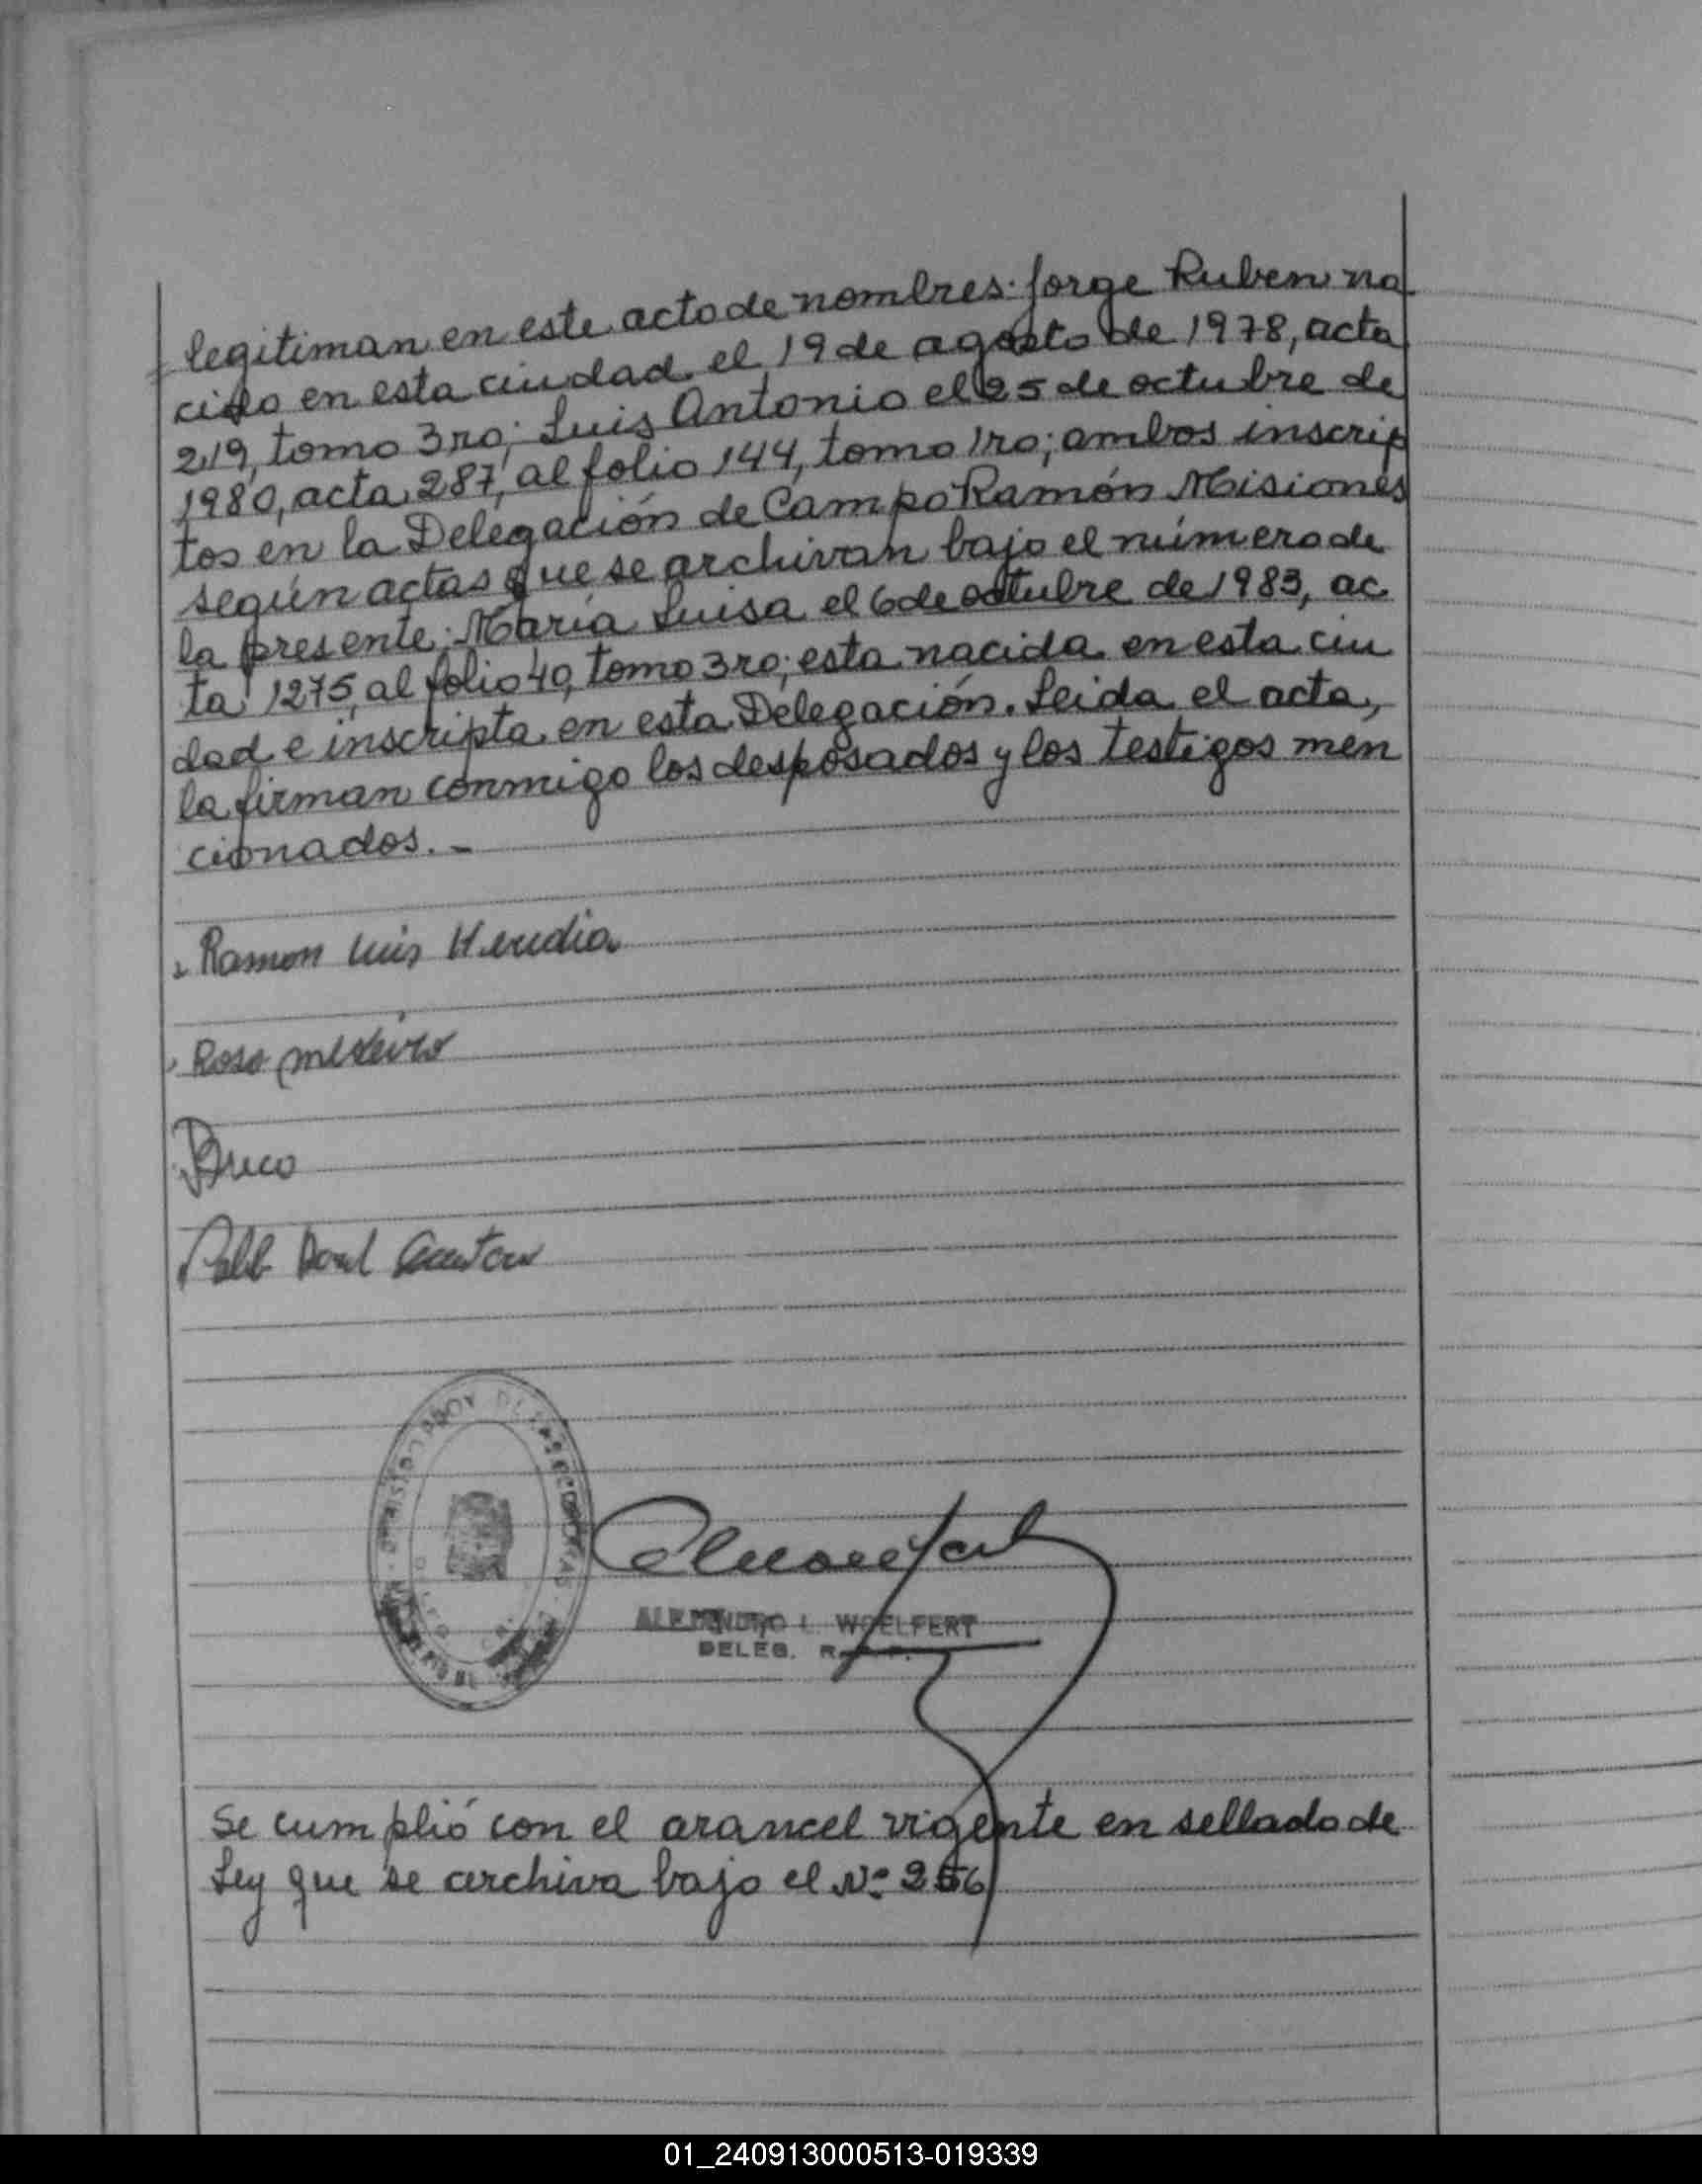 legitiman en este acto de nombres: Jorge Ruben na
cido en esta ciudad el 19 de agosto de 1978, acta
219, tomo 3ro; Luis Antonio el 25 de octubre de
1980, acta 287, al folio 144, tomo 1ro; ambos inscrip
tos en la Delegación de Campo Ramón Misiones
según actas que se archivan bajo el número de
la presente; María Luisa el 6 de octubre de 1983, ac
ta 1275, al folio 40, tomo 3ro; esta nacida en esta ciu
dad e inscripta en esta Delegación. Leida el acta,
la firman conmigo los desposados y los testigos men
cionados. -
Ramon Luis Heredia
Rosa
ALEJANDRO L. WOELFERT
DELEG.
Se cumplió con el arancel vigente en sellado de
Ley que se archiva bajo el Nº 256
01_240913000513-019339